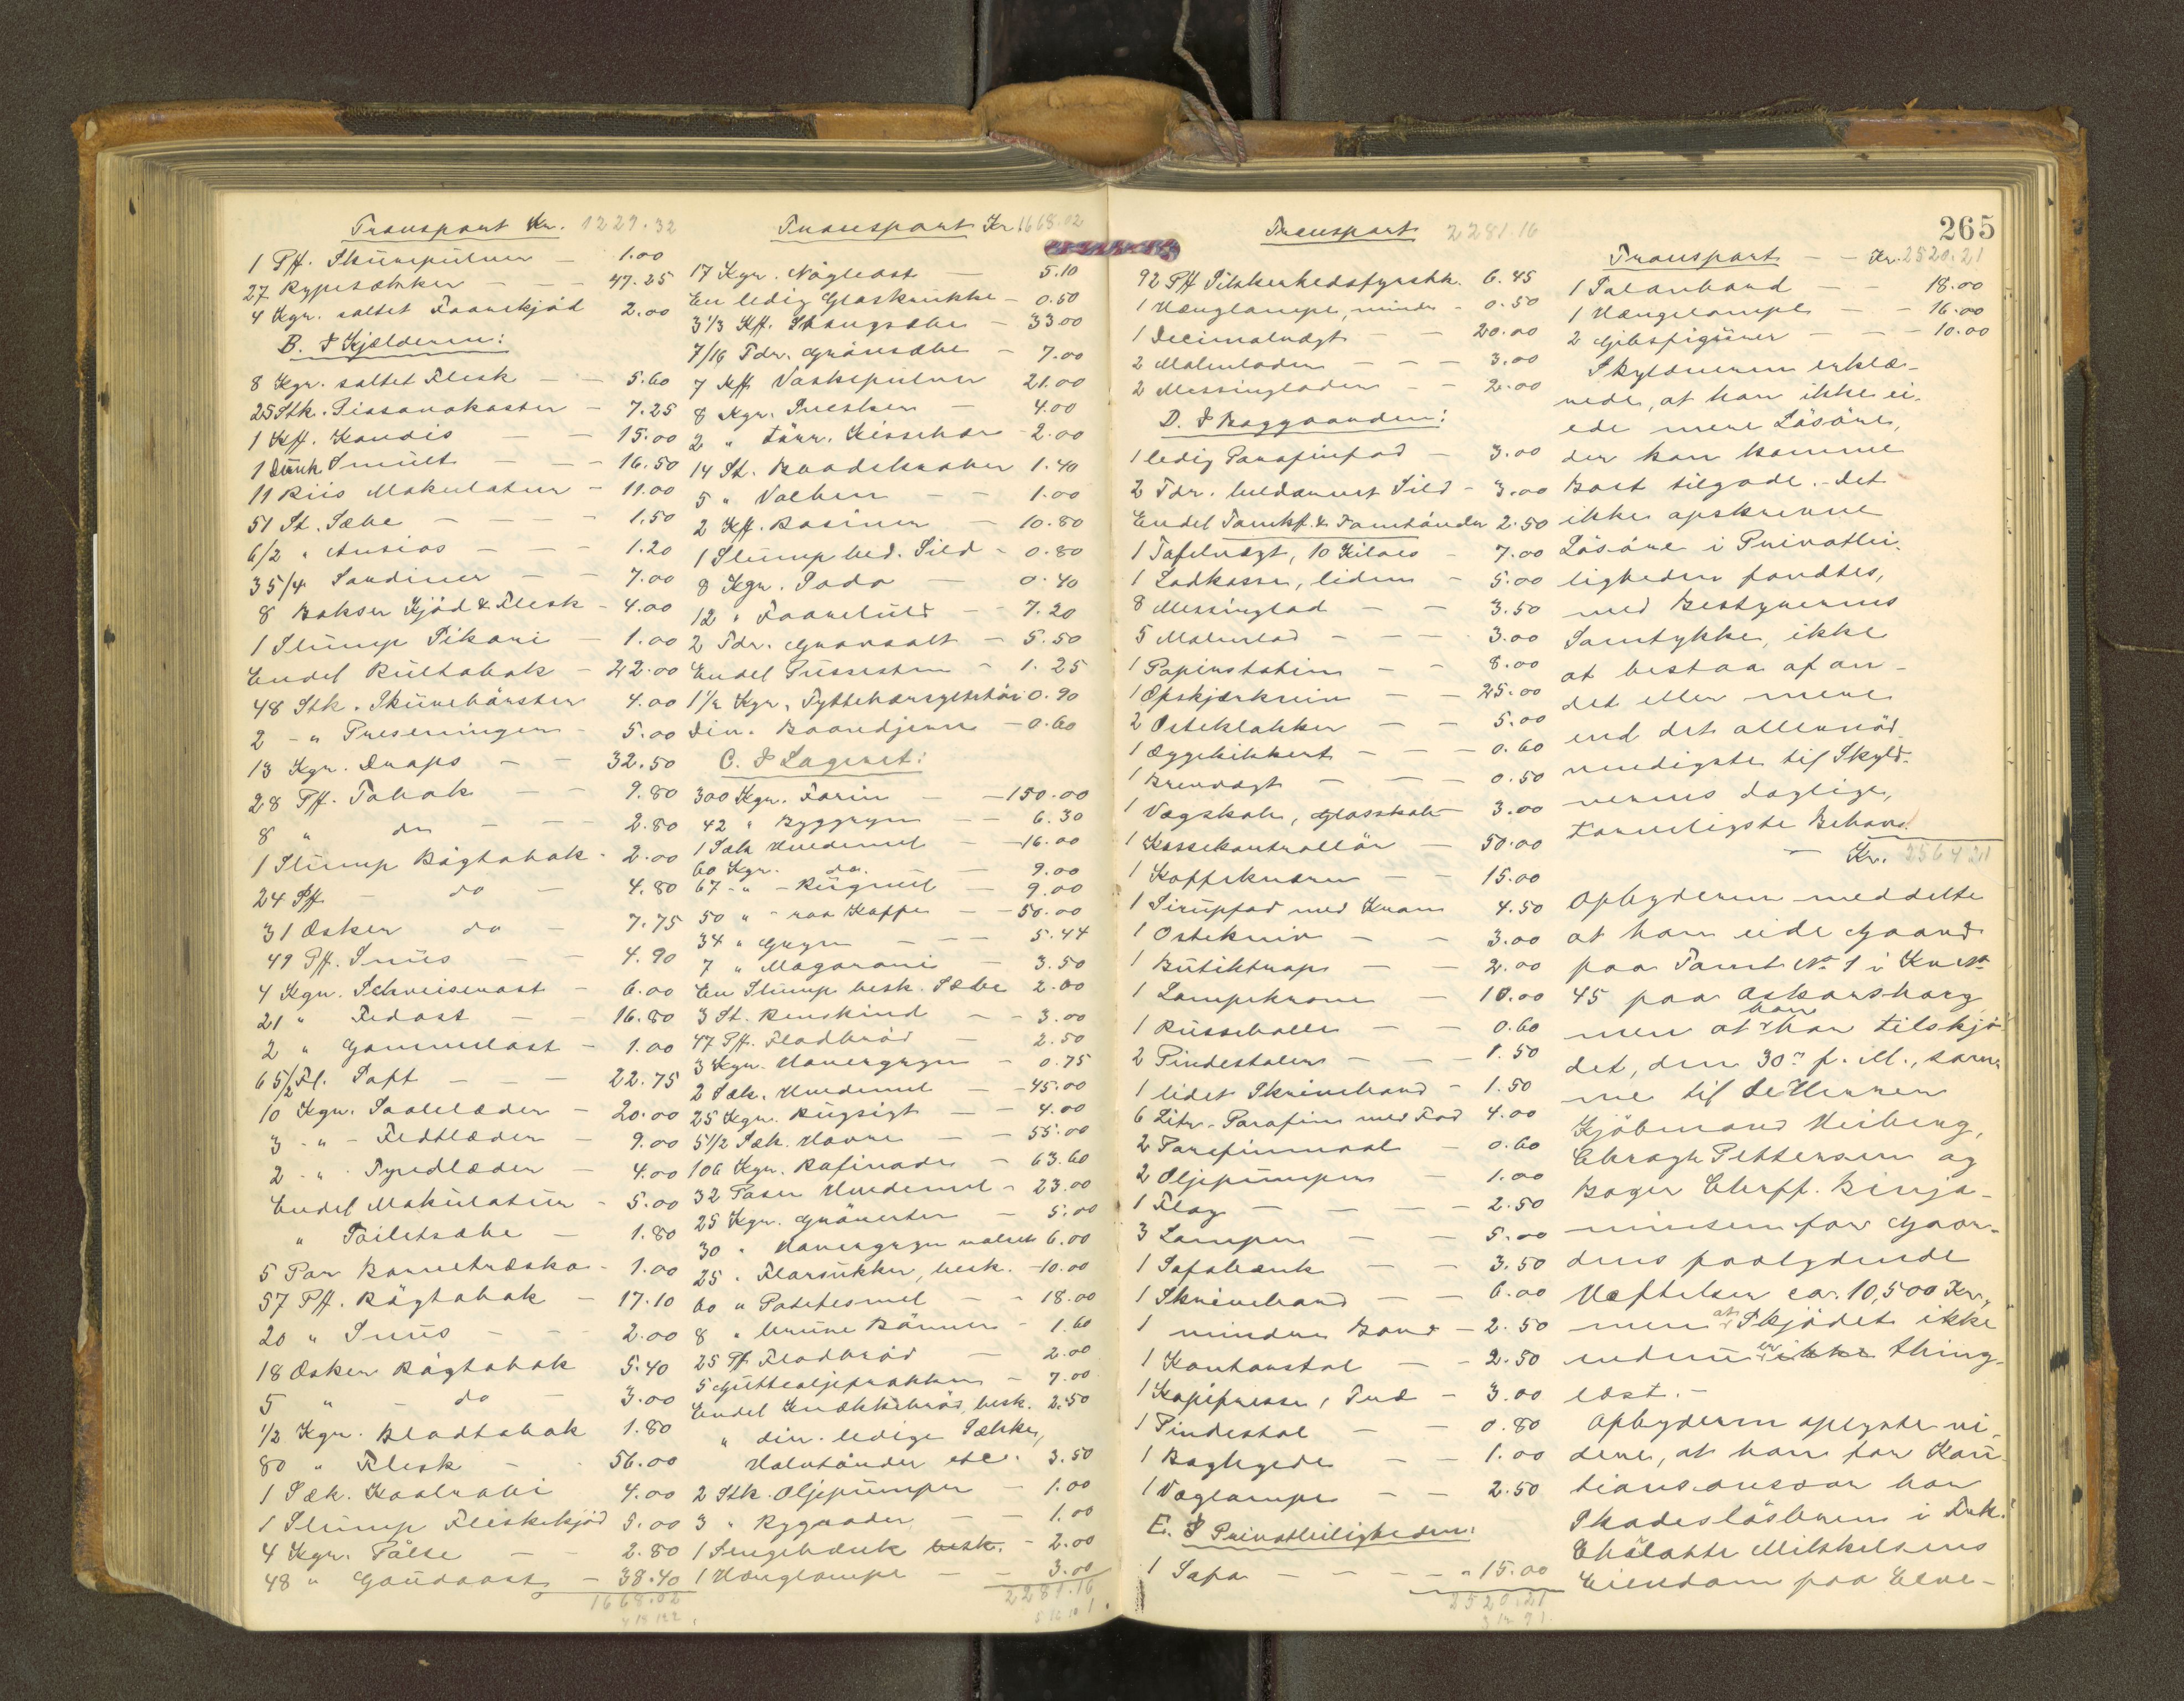 Transport Kr. 1229.32
1 Pk. Skurepulver — 1.00
27 Rypesækker — — 47.25
4 Kgr. saltet Faarekjød 2.00
B. I Kjælderen:
8 Kgr. saltet Flesk — — 5.60
25 Stk. Piasavakoster — 7.25
1 Kss. Kandis — — 15.00
1 Dunk Smult — — 16.50
11 Riis Makulatur — 11.00
51 St. Sæbe — — — 1.50
6/2 " Ansios — — — 1.20
35/4 Sardiner — — 7.00
8 Bokser Kjød & Flesk — 4.00
1 Slump Sikori — 1.00
Endel Rultobak — 42.00
48 Stk. Skurebørster 4.00
2 — " Preseninger — 5.00
13 Kgr. Draps — — 32.50
28 Pk. Tobak — — 9.80
8 " do — — — 2.80
1 Slump Røgtobak — 2.00
24 Pk — do — 4.80
31 Æsker do — 7.75
49 Pk. Snus — — 4.90
4 Kgr. Schweiserost — 6.00
21 " Fedost — — 16.80
2 " Gammelost — 1.00
65/2 Fl. Saft — — — 22.75
10 Kgr. Saalelæder — 20.00
3 - " - Fedtlæder — 9.00
2 - " - Tyredlæder — 4.00
Endel Makulatur — 5.00
" Toiletsæbe — 1.80
5 Par Barnetræsko — 1.00
57 Pk. Røgtobak — 17.10
20 " Snus — — 2.00
18 Æsker Røgtobak 5.40
5 " — do — 3.00
1/2 Kgr. Bladtobak 1.80
80 " Flesk — — 56.00
1 Sæk. Kaalrabi 4.00
1 Slump Fleskekjød 5.00
4 Kgr. Pølse — — 2.80
48 " Goudaost — 38.40
1668.02
Transport Kr 1668.02
17 Kgr. Nøgleost — 5.10
En ledig Glaskrukke — 0.50
3 1/3 Kss. Stangsæbe — 33.00
7/16 Tdr. Grønsæbe — 7.00
7 Kss Vaskepulver 21.00
8 Kgr. Svesker 4.00
2 " tørr. Kirsebær — 2.00
14 St. Brødskraber 1.40
5 " Valker — — 1.00
2 Kss. Rosiner — 10.80
1 Slump bed. Sild — 0.80
8 Kgr. Soda — 0.40
12 " Faareluld — — 7.20
2 Tdr. Grovsalt — 5.50
Endel Pussesten — 1.25
1 1/2 Kgr. Tyttebærsyltetøi 0.90
Div. Baandjern — 0.60
C. I Lageret:
300 Kgr. Farin — — 150.00
42 " Byggryn — — 6.30
1 Sæk Hvedemel — — 16.00
60 Kgr. do. — 9.00
67 - " - Rugmel — 9.00
50 " - raa Kaffe — — 50.00
34 " Gryn — — — 5.44
7 " Magaroni — 3.50
En Slump besk. Sæbe 2.00
3 St. Renskind — — 3.00
47 Pk. Fladbrød — 2.50
3 Kgr. Havregryn — 0.75
2 Sæk. Hvedemel — — 45.00
25 Kgr. Rugsigt — — 4.00
5 1/2 Sæk. Havre — — 55.00
106 Kgr. Rafinade — 63.60
32 Poser Hvedemel — 23.00
25 Kgr. Grønerter — 5.00
30 " Havregryn valsede 6.00
25 " Florsukker, besk. — 10.00
60 " Potetesmel — — 18.00
8 " brune Bønner — 1.60
25 Pk Fladbrød — 2.00
5 Gutteoljefrakker — 7.00
Endel Knækkebrød, besk. 2.50
" div. ledige Sække,
Halvtønder etc. 3.50
2 Stk. Oljepumper — 1.00
3 " Rygeoder — — 1.00
1 Sengebænk besk. — 2.00
1 Hænglampe — — 3.00
2281.16
Transport 2281.16
92 Pk Sikkerhedsfyrstik. 6.45
1 Hænglampe, mindre — 0.50
1 Decimalvægt — — 20.00
2 Malmlodder — — — 3.00
2 Messinglodder — — 2.00
D. I Baggaarden:
1 ledig Parafinfad — 3.00
2 Tdr. beldaarret Sild — 3.00
Endel Tomkf. & Tomtønder 2.50
1 Tafelvægt, 10 Kilos — 7.00
1 Lodkasse, liden — 5.00
8 Messinglod — — 3.50
5 Malmlod — — — 3.00
1 Papirstativ — — 8.00
1 Opskjærkniv — — 25.00
2 Osteklokker — — 5.00
1 Æggekikkert — — — 0.60
1 Brevvægt — — — 0.50
1 Vægskab, Glasskab — 3.00
1 Kassekontrollør — 50.00
1 Kaffekværn — — 15.00
1 Sirupfad med Kran 4.50
1 Ostekniv — — 3.00
1 Butiktrap — — 2.00
1 Lampekrone — 10.00
1 Russeballe — — 0.60
2 Pindestoler — — — 1.50
1 lidet Skrivebord — 1.50
6 Litr. Parafin med Fad 4.00
2 Parafinmaal — 0.60
2 Oljepumper — 1.00
1 Flag — — — — 2.50
3 Lamper — — 5.00
1 Sofabænk — — 3.50
1 Skrivebord — — 6.00
1 mindre Bord — 2.50
1 Kontorstol — — 2.50
1 Kopipresse, Træ — 3.00
1 Pindestol — — 0.80
1 Baghyede — — 1.00
1 Væglampe — — 2.50
E. I Privatleiligheden:
1 Sofa — — — — 15.00
2520.21
265
Transport — — Kr. 2520.21
1 Salonbord — — 18.00
1 Hængelampe — — 16.00
2 Gibsfigurer — — — 10.00
Skyldneren erklæ-
rede, at han ikke ei-
ede mere Løsøre,
der kan komme
Boet tilgode. - Det
ikke opskrevne
Løsøre i Privatlei-
ligheden fandtes,
med Bestyrerens
Samtykke, ikke
at bestaa af an-
det eller mere
end det allernød-
vendigste til Skyld-
nerens daglige,
tarveligste Behov.
— Kr. 2564.21
Opbyderen meddelte
at han eide Gaard
paa Tomt No 1 i Kv No
45 paa Oskarsborg
men at han har tilskjø-
det, den 30te f. M., sam-
me til de Herrer
Kjøbmand Heiberg,
Chragh Pettersen og
Bager Chrff. Benja-
minsen for Gaar-
dens paalydende
Hæftelser ca. 10,500 Kr.,
men at Skjødet ikke
endnu er ikke thing-
læst. -
Opbyderen oplyste vi-
dere, at han for Kau-
tionsansvar har
Skadesløsbrev i Frk.
Charlotte Mikkelsens
Eiendom paa Elve-